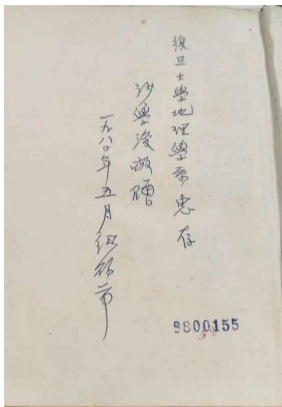 復旦大學地理學系惠存
沙學浚敬贈
一九八〇年五月紐約市
9800155